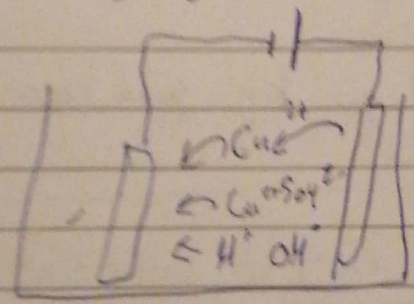 ← Cu²⁺ ←
← Cu²⁺SO₄²⁻
← H⁺ OH⁻